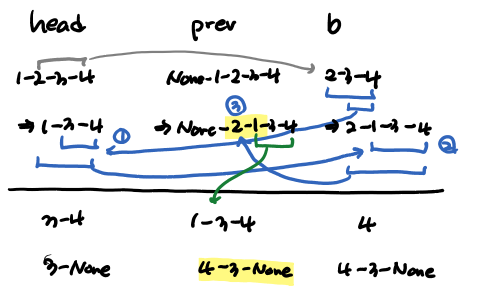 head prev b
1-2-3-4 None-1-2-3-4 2-3-4
⇒ 1-3-4 ① ⇒ None-2-1-3-4 ③ ⇒ 2-1-3-4 ②
3-4 1-3-4 4
3-None 4-3-None 4-3-None